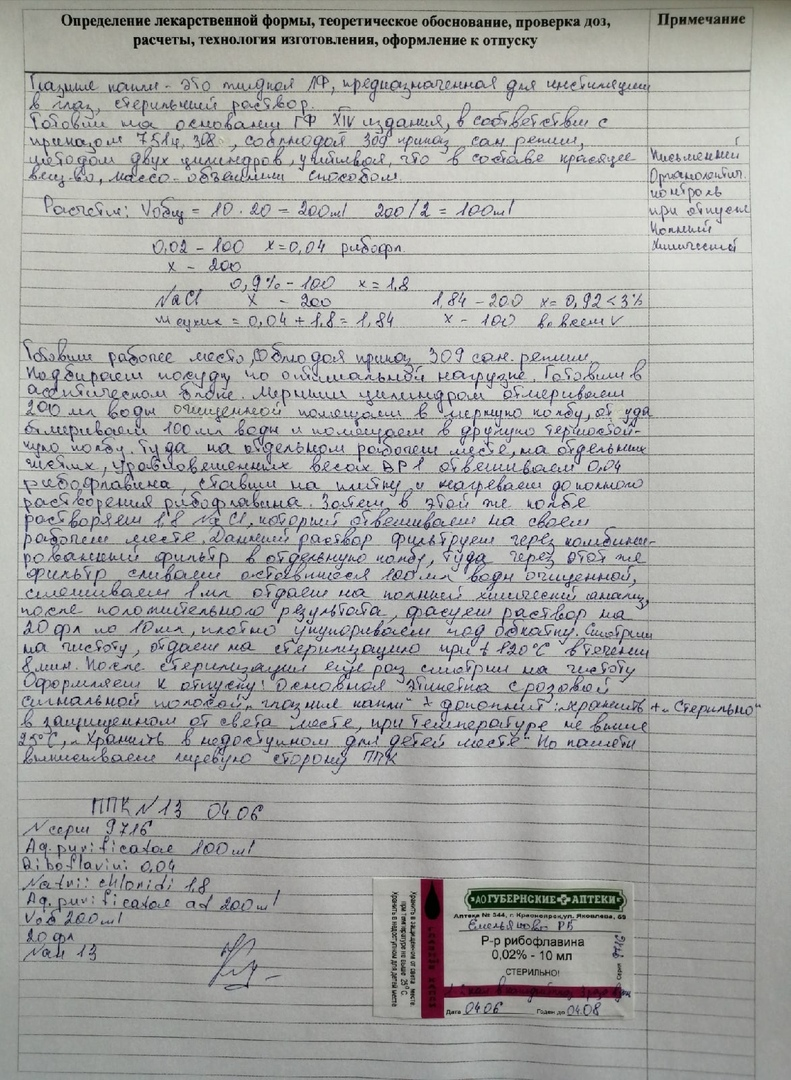 Определение лекарственной формы, теоретическое обоснование, проверка доз,
расчеты, технология изготовления, оформление к отпуску
Примечание
Глазные капли - это жидкая ЛФ, предназначенная для инстиляции
в глаз, стерильный раствор.
Готовим на основании ГФ XIV издания, в соответствии с
приказом 751н, 308, соблюдая 309 приказ сан. режим,
методом двух цилиндров, учитывая, что в составе красящее
вещ-во, массо-объемным способом.
Письменный
Органолептич.
контроль
при отпуске
Полный
Химический
Расчеты: Vобщ = 10 · 20 = 200ml 200/2 = 100ml
0,02 - 100 x=0,04 рибофл.
x - 200
0,9% - 100 x = 1,8
NaCl x - 200 1,84 - 200 x = 0,92 < 3%
m сухих = 0,04 + 1,8 = 1,84 x - 100 во всем V
Готовим рабочее место, соблюдая приказ 309 сан. режим.
Подбираем посуду по оптимальной нагрузке. Готовим в
асептическом блоке. Мерным цилиндром отмериваем
200 мл воды очищенной помещаем в мерную колбу, от уда
отмериваем 100 мл воды и помещаем в другую термостой-
кую колбу. Туда на отдельном рабочем месте, на отдельных
чистых, уравновешенных весах ВР 1 отвешиваем 0,04
рибофлавина, ставим на плитку и нагреваем до полного
растворения рибофлавина. Затем в этой же колбе
растворяем 1,8 NaCl, который отвешиваем на своем
рабочем месте. Данный раствор фильтруем через комбини-
рованный фильтр в отдельную колбу, туда через этот же
фильтр сливаем оставшиеся 100 мл воды очищенной,
смешиваем 1 мл отдаем на полный химический анализ,
после положительного результата, фасуем раствор на
20 фл по 10 мл, плотно укупориваем под обкатку. Смотрим
на чистоту, отдаем на стерилизацию при t 120°C в течении
8 мин. После стерилизации еще раз смотрим на чистоту
Оформляем к отпуску: Основная этикетка с розовой
сигнальной полосой „глазные капли" + дополнит: „хранить + „Стерильно"
в защищенном от света месте, при температуре не выше
25°C, „Хранить в недоступном для детей месте" По памяти
выписываем лицевую сторону ППК
ППК N 13 04.06
N серии 9716
Aq. purificatae 100 ml
Riboflavini 0,04
Natrii chloridi 1,8
Aq. purificatae ad 200 ml
Vоб 200 ml
20 фл
Nан 13
Хранить в защищенном от света месте
при температуре не выше 25°C
Хранить в недоступном для детей месте
ГЛАЗНЫЕ КАПЛИ
АО ГУБЕРНСКИЕ АПТЕКИ
Аптека № 344, г. Красноярск, ул. Яковлева, 63
РБ
Р-р рибофлавина
0,02% - 10 мл
СТЕРИЛЬНО!
Серия 9716
Дата 04.06 Годен до 04.08